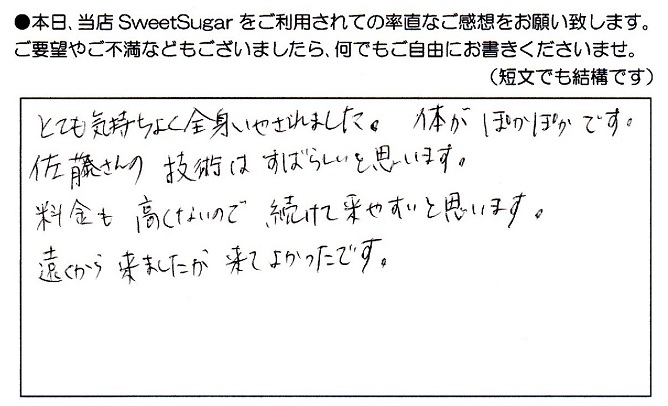 ●本日、当店 SweetSugar をご利用されての率直なご感想をお願い致します。
ご要望やご不満などもございましたら、何でもご自由にお書きくださいませ。
（短文でも結構です）
とても気持ちよく全身いやされました。 体が ぽかぽかです。
佐藤さんの 技術は すばらしいと思います。
料金も 高くないので 続けて来やすいと思います。
遠くから 来ましたが 来てよかったです。